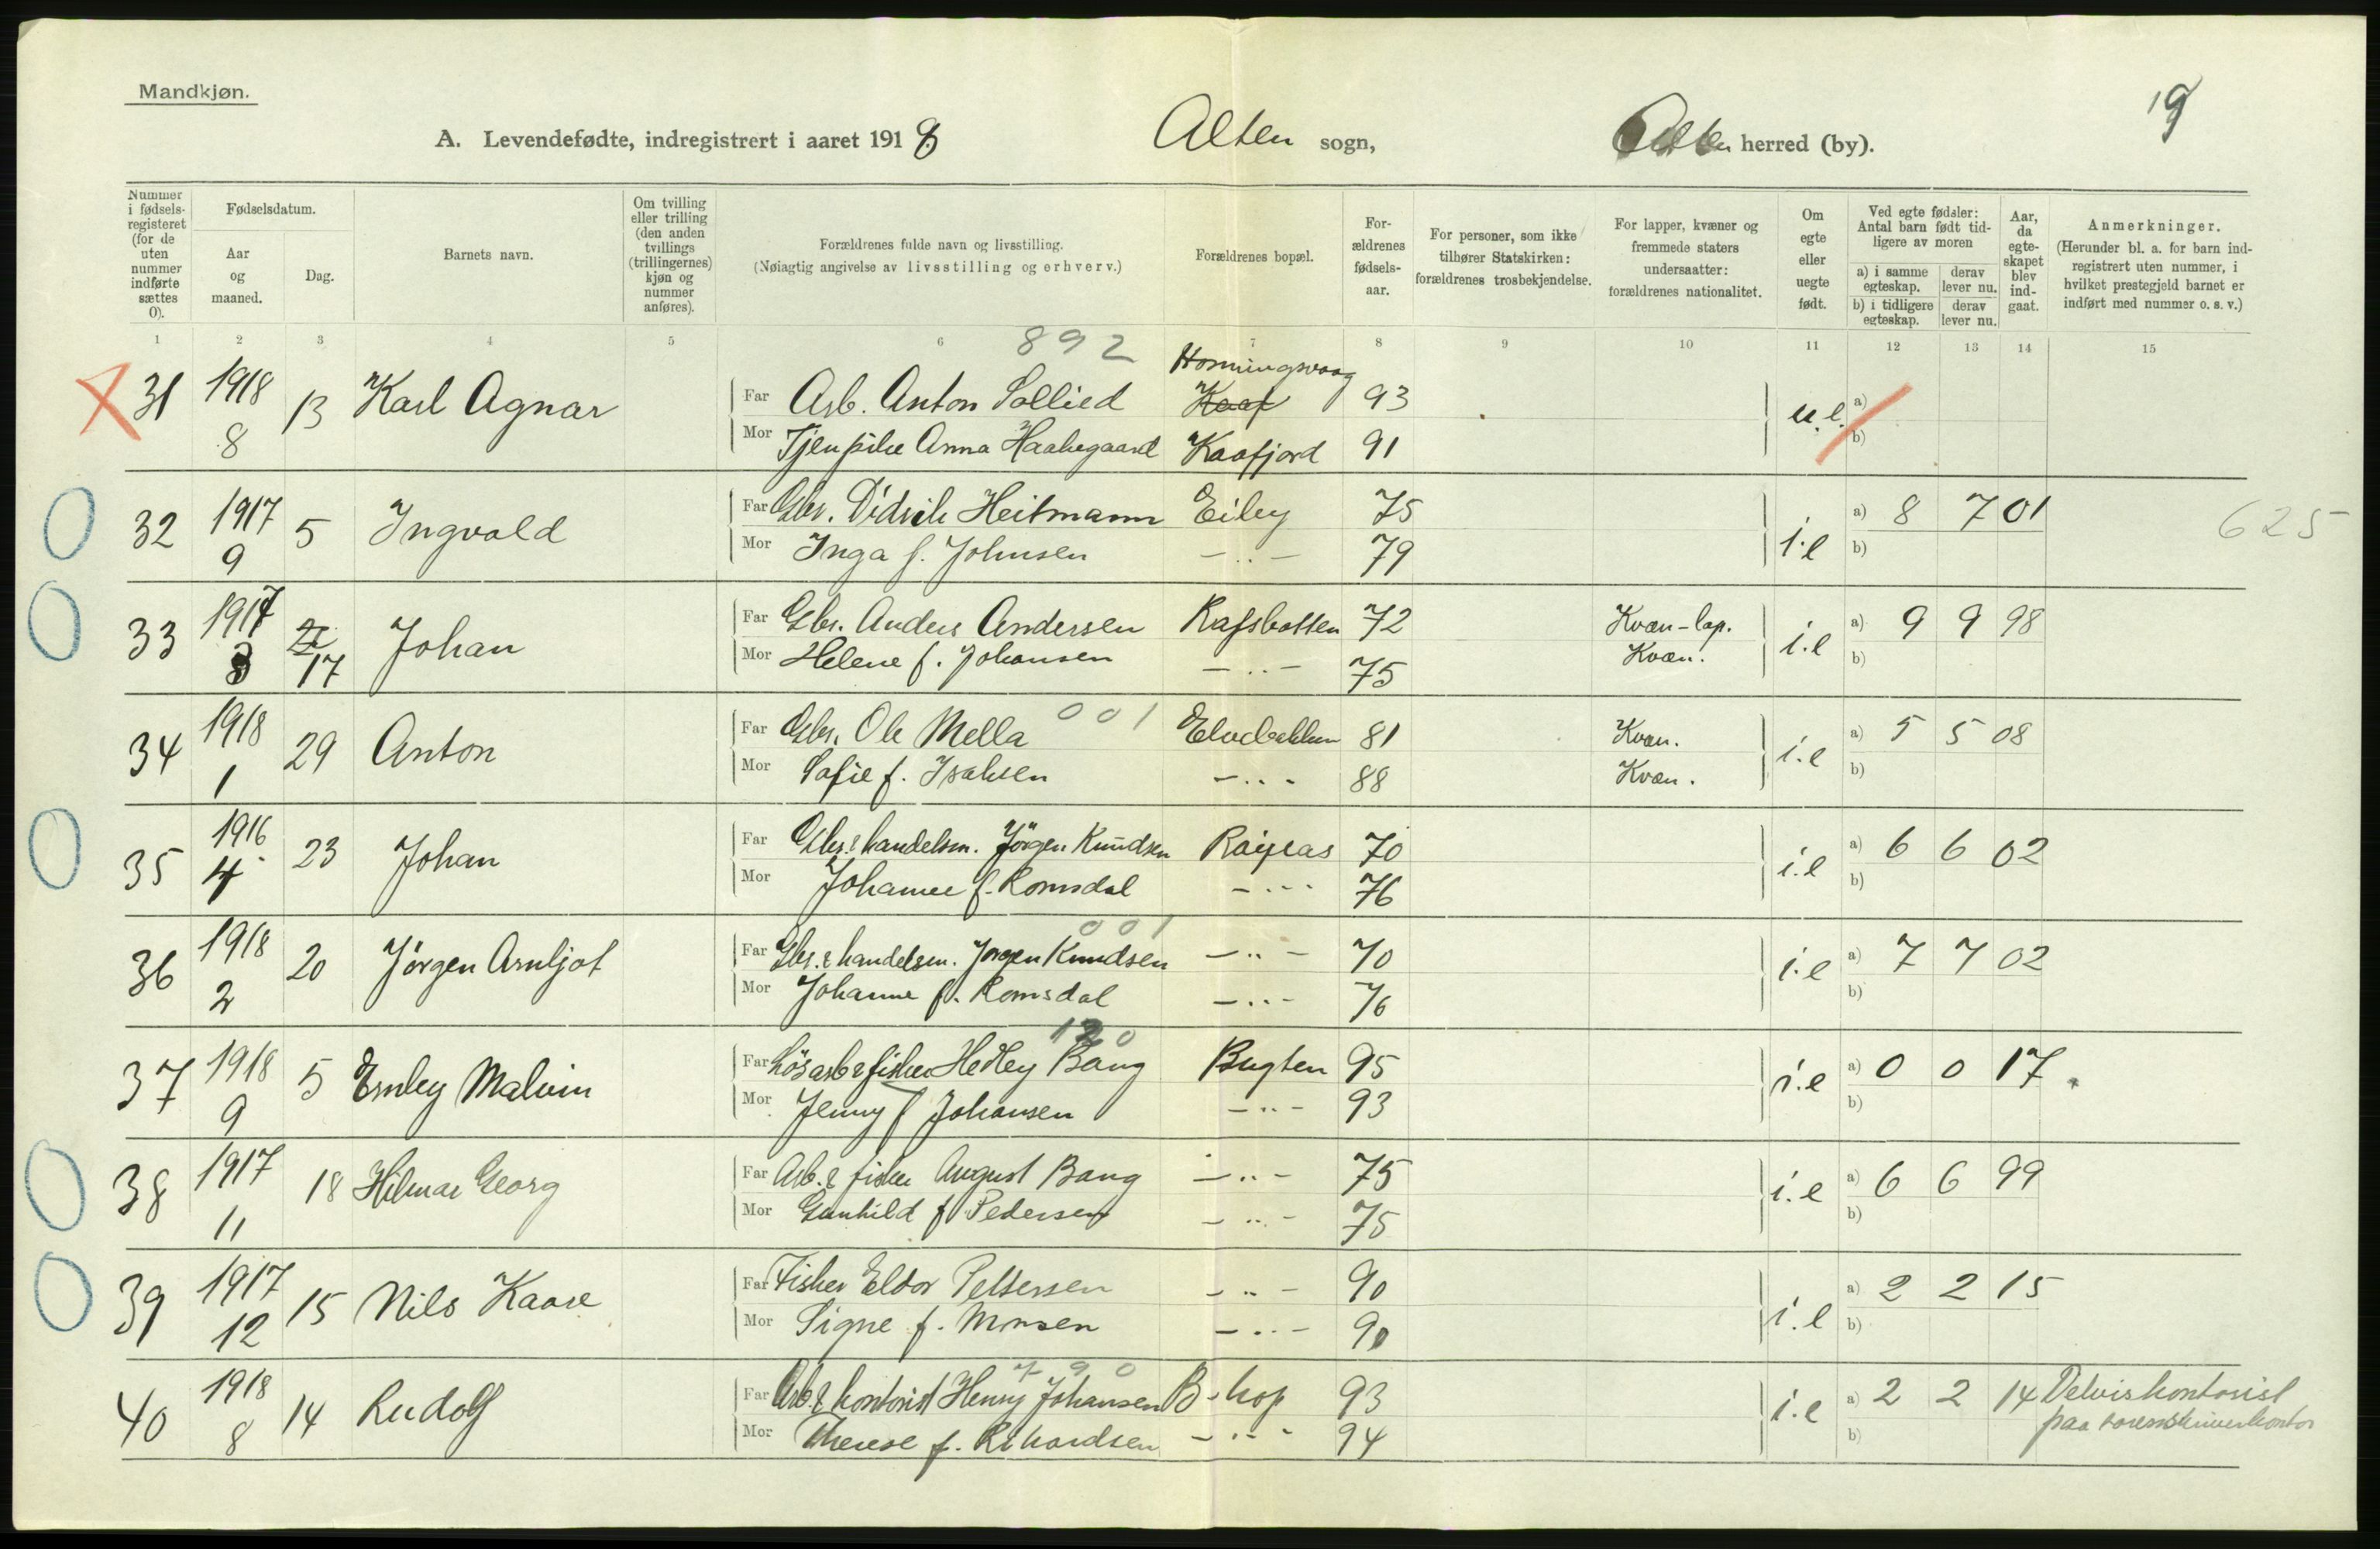 Mandkjøn.
19
A. Levendefødte, indregistrert i aaret 1918. Alten sogn, Alten herred (by).
Nummer i fødsels-registeret (for de uten nummer indførte sættes 0).
Fødselsdatum.
Aar og maaned.
Dag.
Barnets navn.
Om tvilling eller trilling (den anden tvillings (trillingernes) kjøn og nummer anføres).
Forældrenes fulde navn og livsstilling.
(Nøiagtig angivelse av livsstilling og erhverv.)
Forældrenes bopæl.
For-ældrenes fødsels-aar.
For personer, som ikke tilhører Statskirken: forældrenes trosbekjendelse.
For lapper, kvæner og fremmede staters undersaatter: forældrenes nationalitet.
Om egte eller uegte født.
Ved egte fødsler: Antal barn født tid-ligere av moren
a) i samme egteskap. derav lever nu.
b) i tidligere egteskap. derav lever nu.
Aar, da egte-skapet blev ind-gaat.
Anmerkninger.
(Herunder bl. a. for barn ind-registrert uten nummer, i hvilket prestegjeld barnet er indført med nummer o. s. v.)
1 2 3 4 5 6 7 8 9 10 11 12 13 14 15
892
Honningsvaag
31 1918 8 13 Karl Agnar Far Arb. Anton Sollied Kaaf 93 u.e. a)
Mor Tjen.pike Anna Haakegaard Kaafjord 91 b)
32 1917 9 5 Ingvald Far Gbr. Didrik Heitmann Eiby 75 i.e a) 8 7 01 625
Mor Inga f. Johnsen -..- 79 b)
33 1917 3 17 Johan Far Gbr. Anders Andersen Rafsbotten 72 Kvæn-lap. i.e a) 9 9 98
Mor Helene f. Johansen -..- 75 Kvæn. b)
001
34 1918 1 29 Anton Far Gbr. Ole Mella Elvebakken 81 Kvæn. i.e a) 5 5 08
Mor Sofie f. Isaksen -..- 88 Kvæn. b)
35 1916 4 23 Johan Far Gbr. & handelsm. Jörgen Knudsen Raipas 70 i.e a) 6 6 02
Mor Johanne f. Romsdal -..- 76 b)
001
36 1918 2 20 Jörgen Arnljot Far Gbr. & handelsm. Jörgen Knudsen -..- 70 i.e a) 7 7 02
Mor Johanne f. Romsdal -..- 76 b)
120
37 1918 9 5 Ernley Malvin Far Lösarb & fisker Hedley Bang Bugten 95 i.e a) 0 0 17
Mor Jenny f Johansen -..- 93 b)
38 1917 11 18 Hilmar Georg Far Arb. & fisker August Bang -..- 75 i.e a) 6 6 99
Mor Gunhild f Pedersen -..- 75 b)
39 1917 12 15 Nils Kaare Far Fisker Eldor Pettersen -..- 90 i.e a) 2 2 15
Mor Signe f. Monsen -..- 90 b)
790
40 1918 8 14 Rudolf Far Arb. & kontorist Henry Johansen B.hop 93 i.e a) 2 2 14 Delvis kontorist
Mor Therese f. Rikardsen -..- 94 b) paa sorenskriverkontor